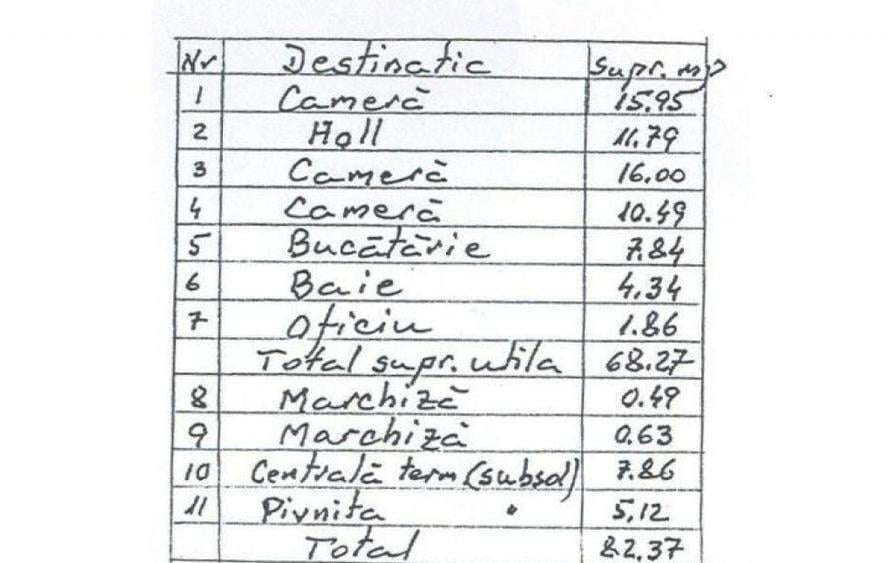 Nr Destinatie Supr. mp
1 Cameră 15.95
2 Holl 11.79
3 Cameră 16.00
4 Cameră 10.49
5 Bucătărie 7.84
6 Baie 4.34
7 Oficiu 1.86
Total supr. utila 68.27
8 Marchiză 0.49
9 Marchiză 0.63
10 Centrală term (subsol) 7.86
11 Pivnita " 5.12
Total 82.37